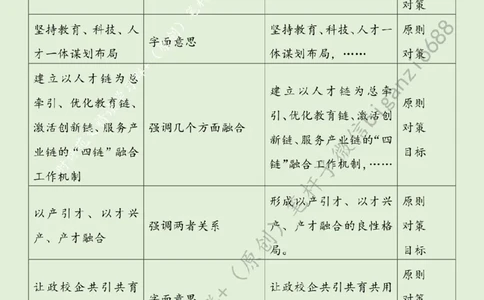 对策
坚持教育、科技、人
才一体谋划布局
字面意思
坚持教育、科技、人才一
体谋划布局，……
原则
对策
建立以人才链为总
牵引、优化教育链、
激活创新链、服务产
业链的“四链”融合
工作机制
强调几个方面融合
建立以人才链为总牵
引、优化教育链、激活创
新链、服务产业链的“四
链”融合工作机制，……
原则
对策
目标
以产引才、以才兴
产、产才融合
强调两者关系
形成以产引才、以才兴
产、产才融合的良性格
局。
原则
对策
目标
让政校企共引共育
字面意思
让政校企共引共育共用
原则
对策
（原创）笔杆子微信biganzi6688